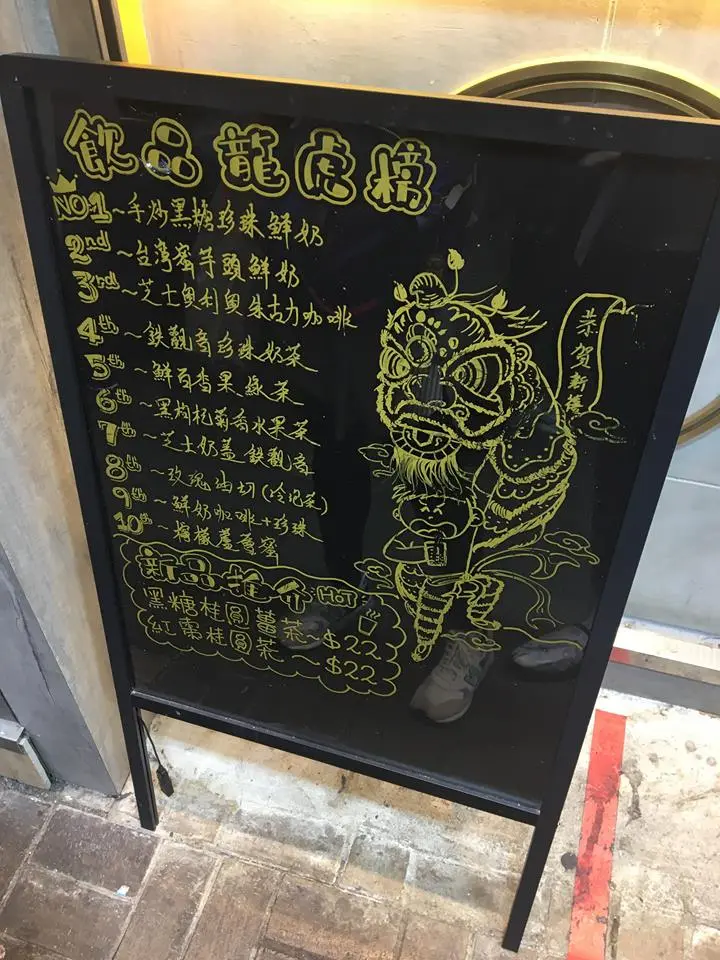 飲品龍虎榜
NO.1~手炒黑糖珍珠鮮奶
2nd~台灣蜜芋頭鮮奶
3rd~芝士奧利奧朱古力咖啡
4th~鉄觀音珍珠奶茶
5th~鮮百香果綠茶
6th~黑枸杞菊香水果茶
7th~芝士奶蓋鉄觀音
8th~玫瑰油切(冷泡茶)
9th~鮮奶咖啡+珍珠
10th~檸檬蘆薈蜜
新品推介 HOT
黑糖桂圓薑茶~$22
紅棗桂圓茶~$22
恭賀新禧